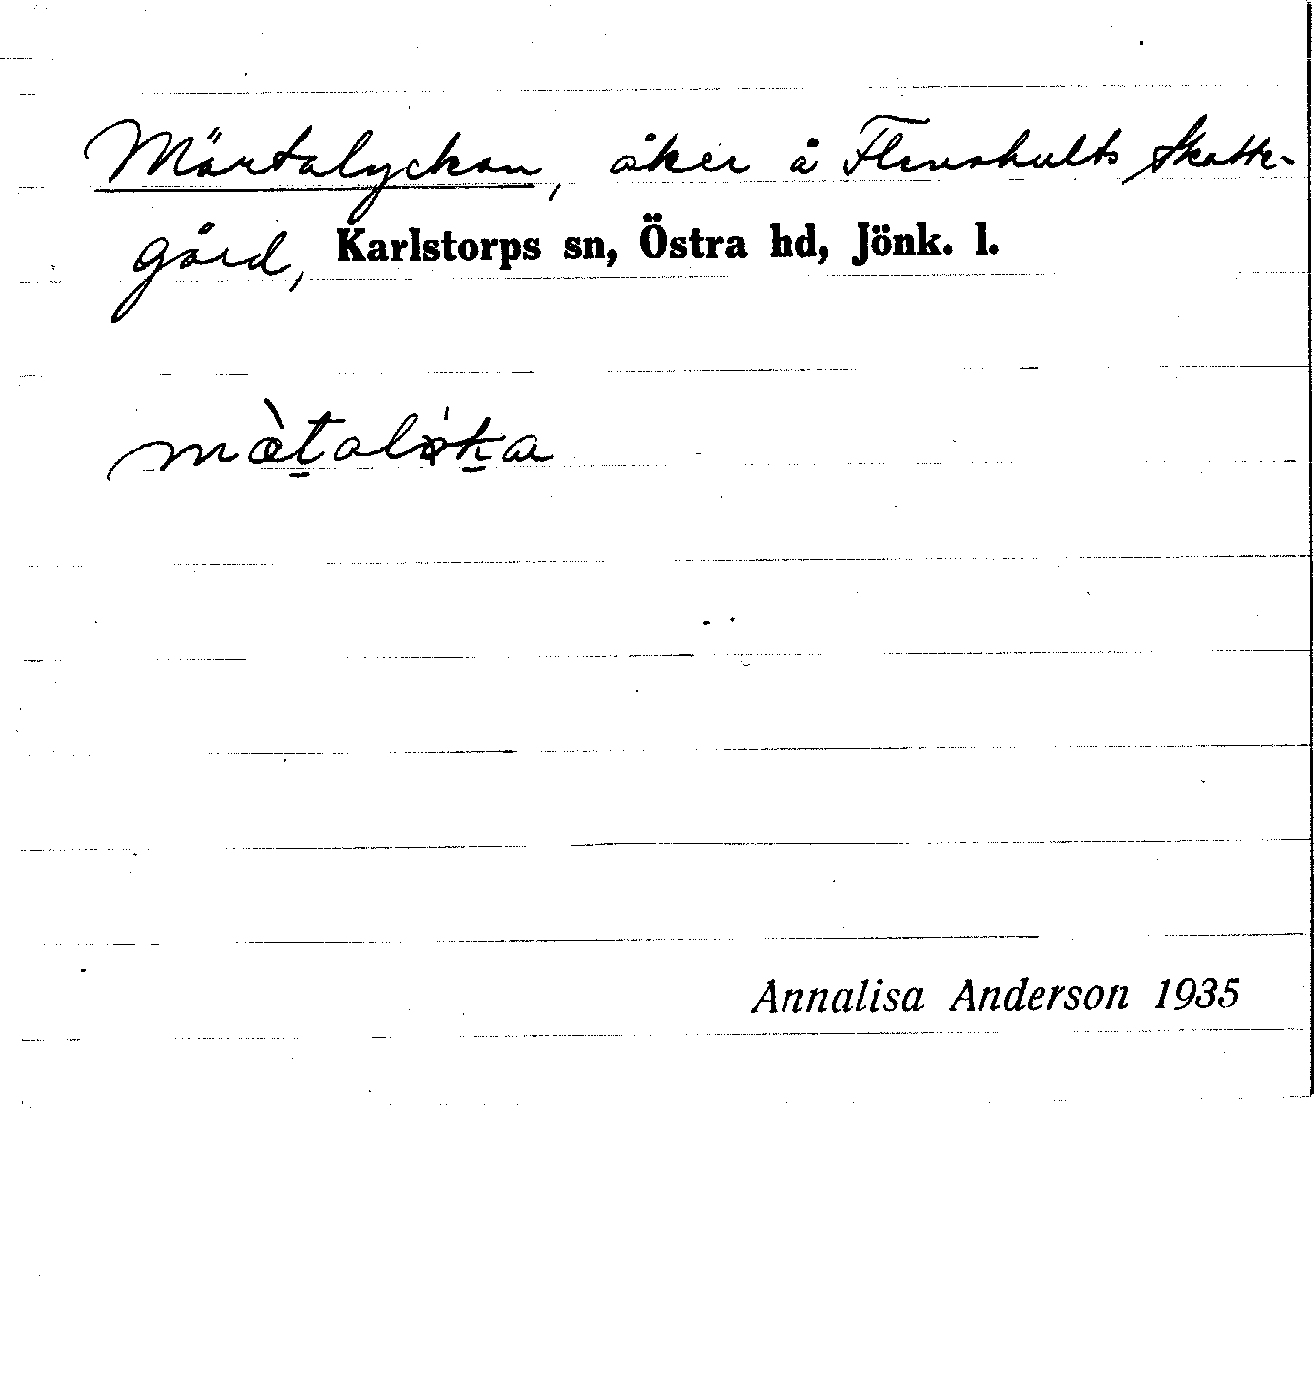 Märtalyckan, åker å Flenshults Skatte-
gård, Karlstorps sn, Östra hd, Jönk. l.
Annalisa Anderson 1935